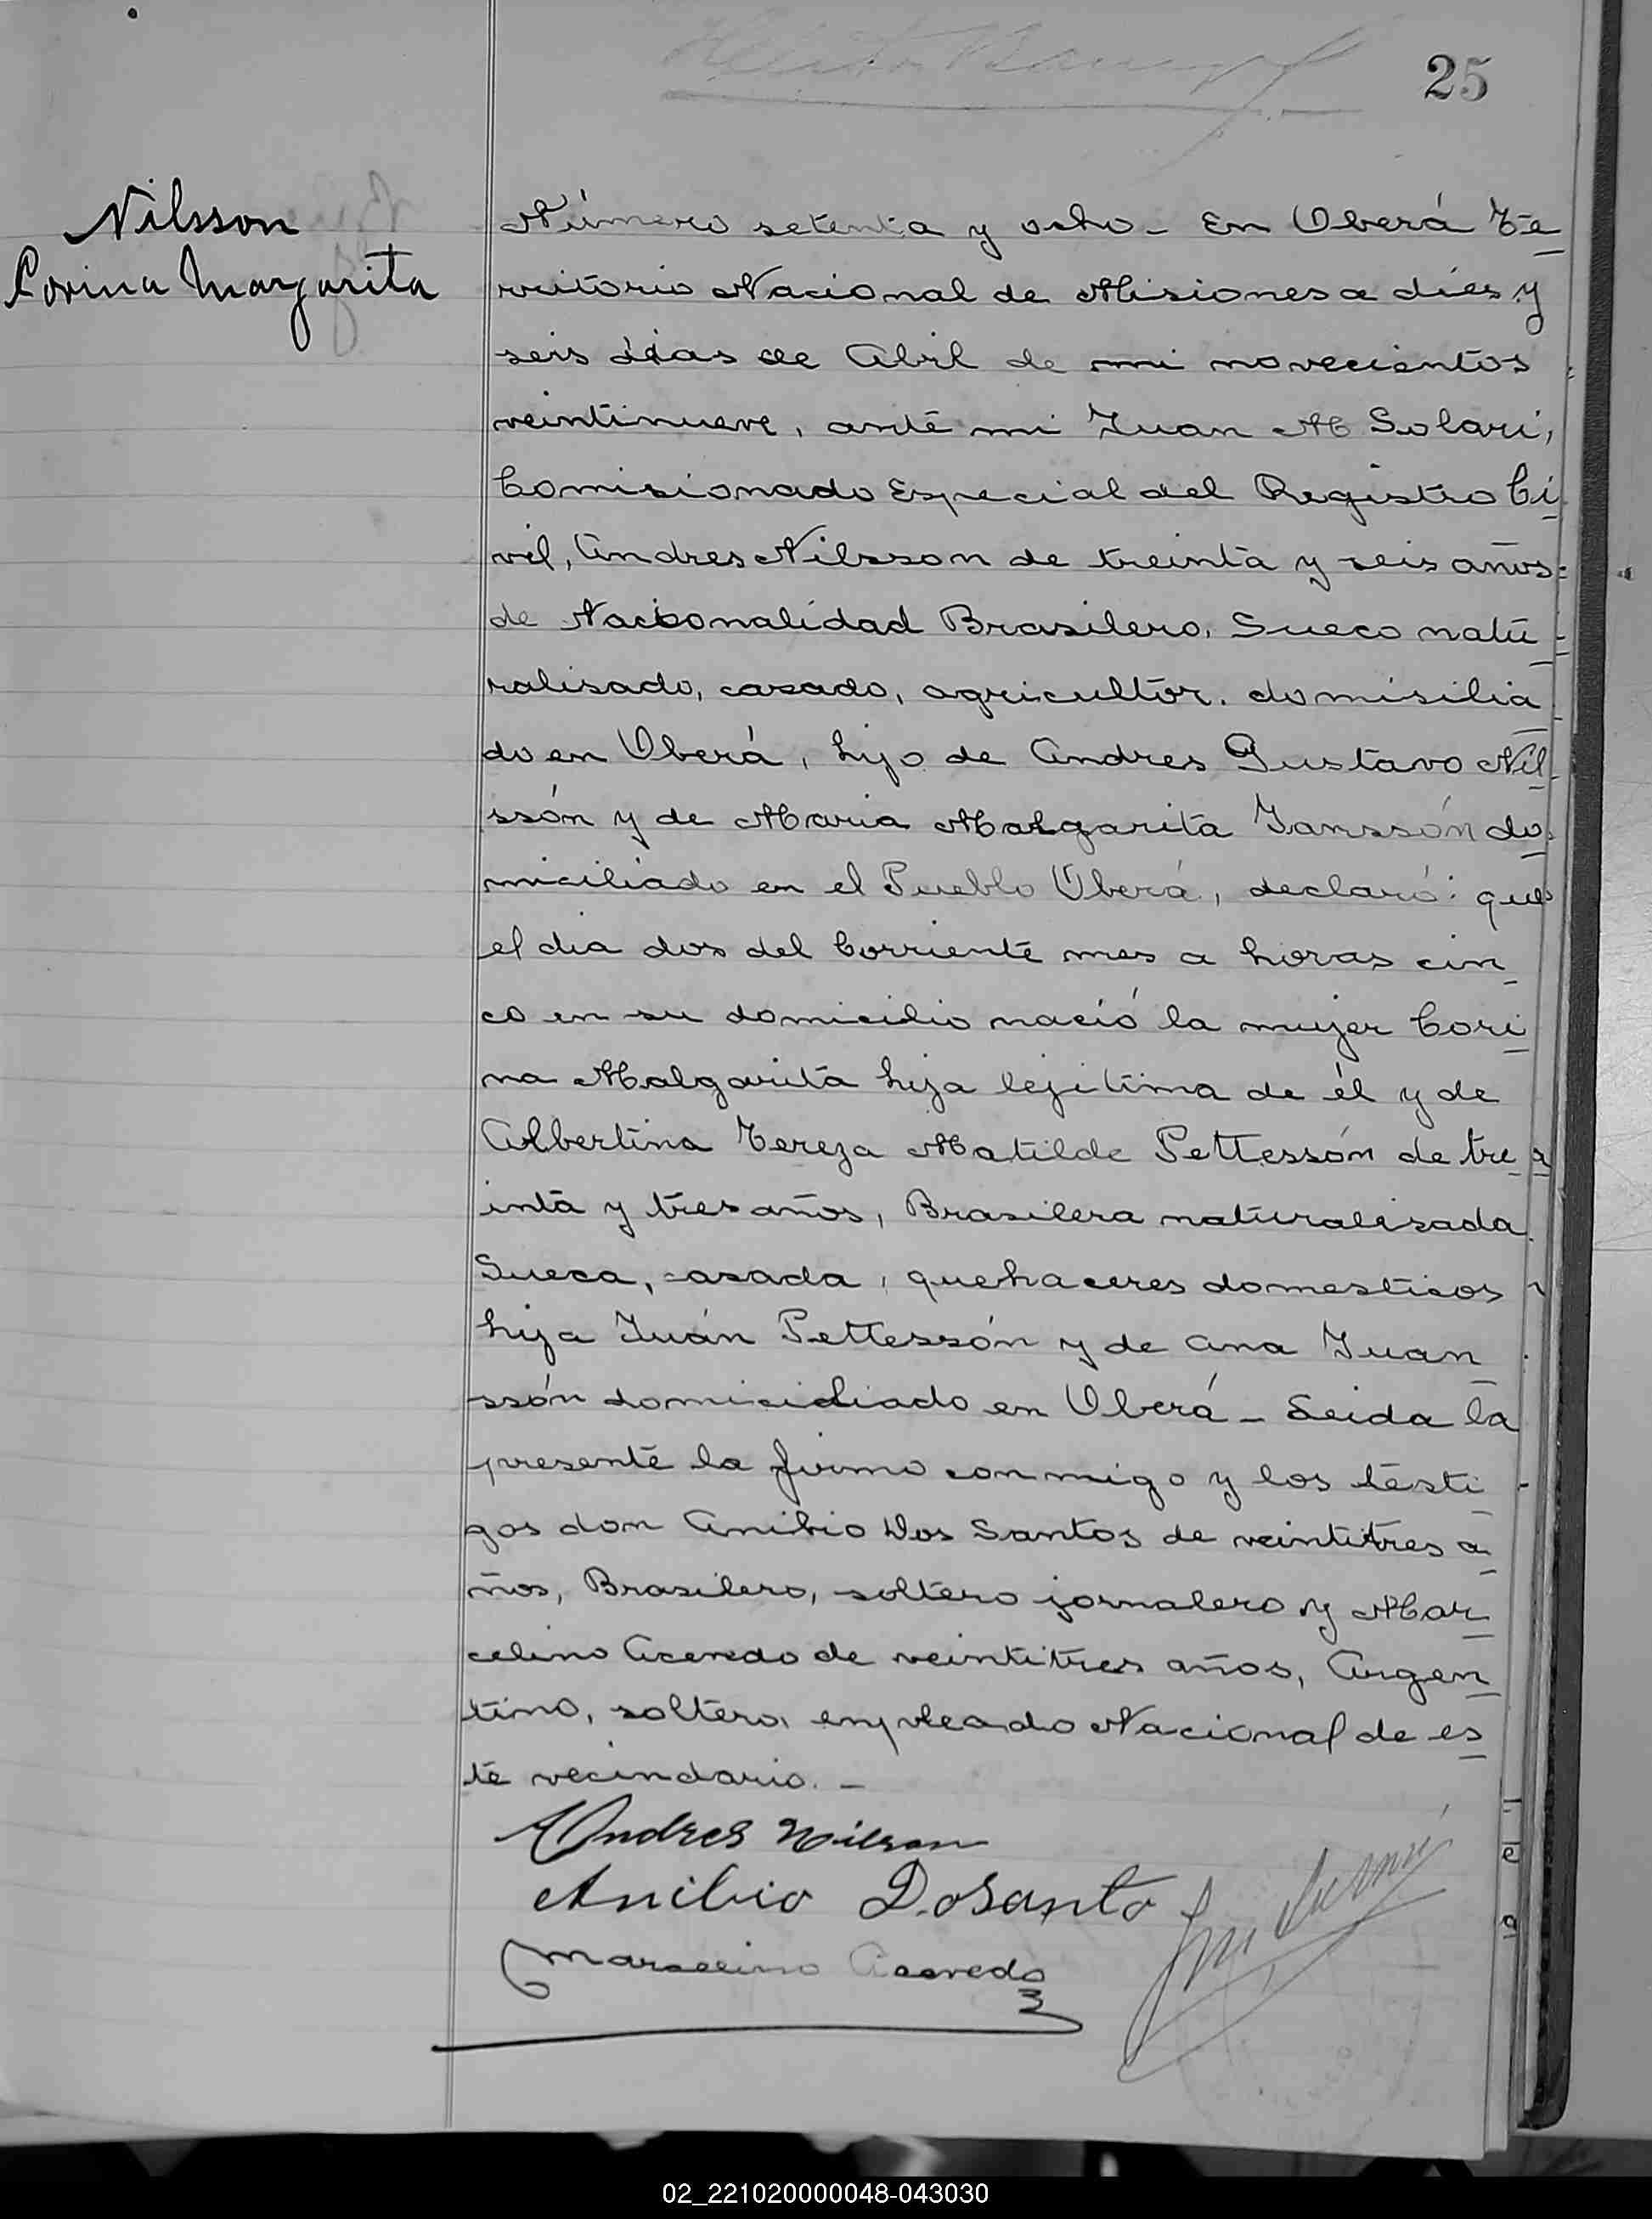 25
Nilsson
Corina Margarita
Número setenta y ocho - En Oberá Te
rritorio Nacional de Misiones a diés y
seis dias de Abril de mi novecientos
veintinueve, ante mi Juan M Solari,
Comisionado Especial del Registro Ci
vil, Andres Nilsson de treinta y seis años
de Nacionalidad Brasilero, Sueco natu
ralisado, casado, agricultor, domisilia
do en Oberá, hijo de Andres Gustavo Nil
ssón y de Maria Malgarita Janssón do
miciliado en el Pueblo Oberá, declaró: que
el dia dos del Corriente mes a horas cin
co en su domicilio nació la mujer Cori
na Malgarita hija lejitima de él y de
Albertina Tereza Matilde Pettessón de tre
inta y tres años, Brasilera naturalisada
Sueca, casada, quehaceres domesticos
hija Juán Pettessón y de Ana Juan
ssón domiciliado en Oberá - Leida la
presente la firmo conmigo y los testi
gos don Anibio Dos Santos de veintitres a
ños, Brasilero, soltero jornalero y Mar
celino Acevedo de veintitres años, Argen
tino, soltero, empleado Nacional de es
te vecindario. -
Andres Nilson
Anibio D.oSanto
Marcelino Acevedo
02_221020000048-043030